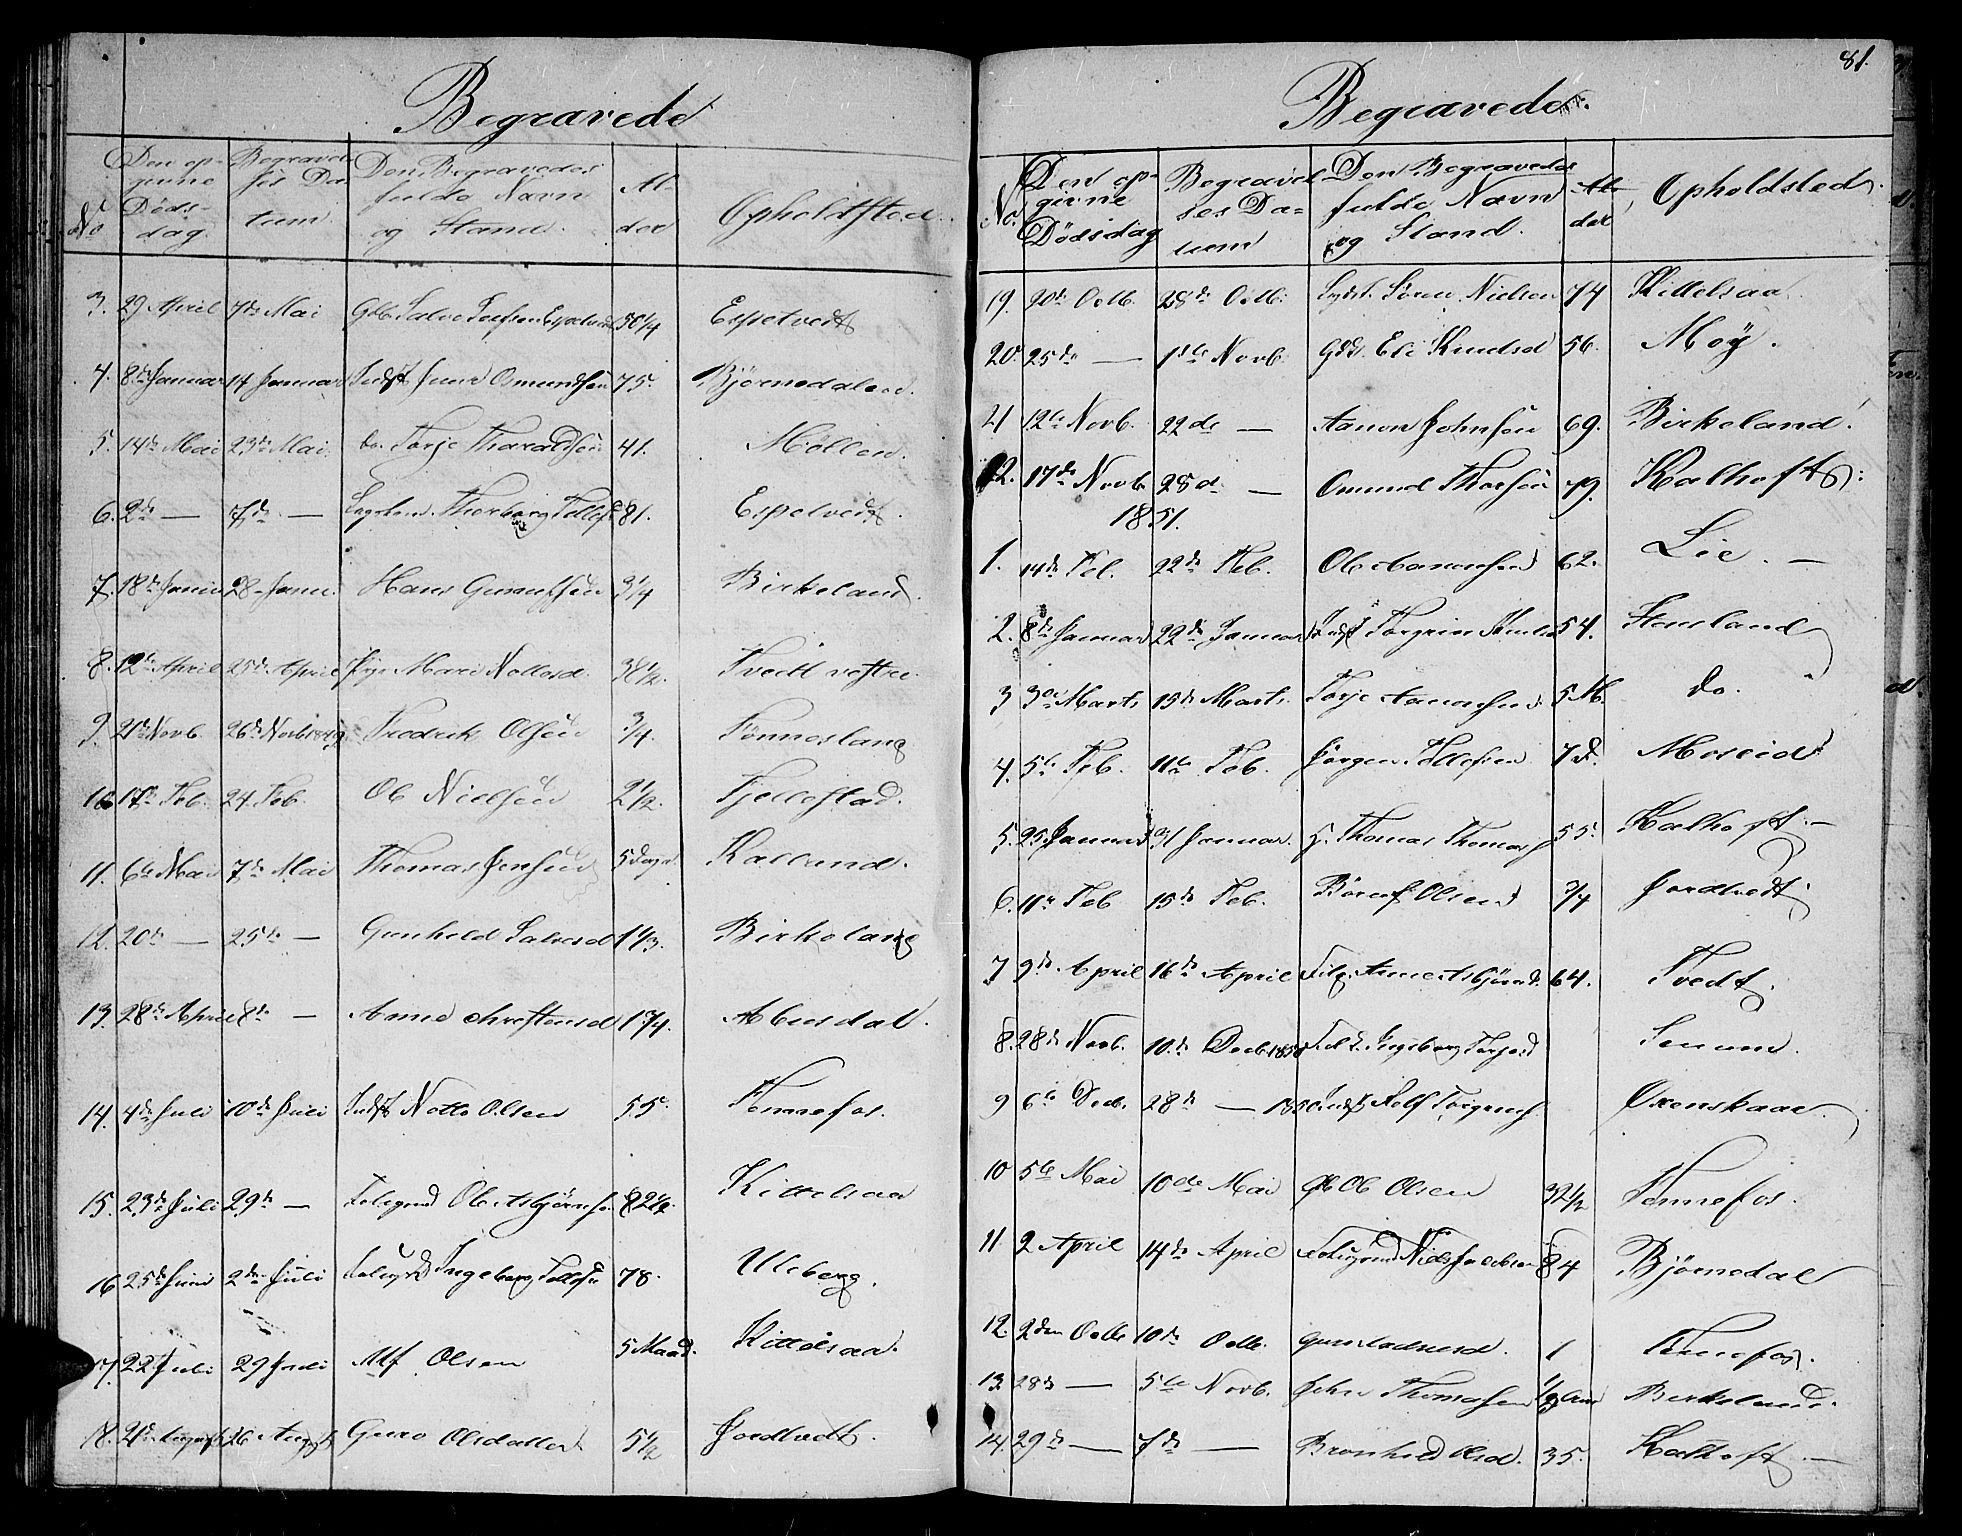 81.
Begravede
No
Den op-
givne
Døds-
dag.
Begravel-
ses Da-
tum
Den Begravedes
fulde Navn
og Stand.
Al-
der
Opholdsted.
3. 29 April 7de Mai Salve 50 1/4 Espetvedt
4. 8de Januar 14 Januar Indst Osmundsen 75. Bjørnedalen.
5. 14de Mai 23de Mai. do. Torje Tharaldsen 41. Møllen.
6. 2de — 7de — Thorborg Tellefsd 81. Espetvedt.
7. 18de Januar 28 Janu. Hans Gunufsen 3 1/4 Birkeland.
8. 12te April 25de April Mari Nottosd. 38 1/2. Tveitt vestre.
9. 21de Novb. 26de Novb 1849 Fredrik Olsen 3/4. Fønnesland
10 17de Feb. 24. Feb. Ole Nielsen 2 1/2. Fjellestad.
11. 6te Mai 7de Mai Thomas Jensen 5 Dage Kalland.
12. 20de — 25de — Gunhild Salvesd 1 1/3. Birkeland
13. 28de April 8de — Anne Christensd 1 3/4. Abusdal.
14. 4de Juli 10de Juli Indst Notto Olsen 55. Fennefos.
15. 23de Juli 29de — Ole Asbjørnsen 82 1/2. Kittelsaa
16 25de Juni 2den Juli Ingeborg Tellefsd 78. Uleberg.
17. 22 Juli 29 Juli Alf Olsen 5 Maad. Kittelsaa.
18. 21de August 26 August Guro Olsdatter 5 1/2 Jordtvedt.
Begravede.
No.
Den op-
givne
Dødsdag
Begravel-
ses Da-
tum
Den Begravedes
fulde Navn
og Stand.
Al-
der
Opholdsted.
19. 20de Octb. 28de Octb. Søren Nielsen 74 Kittelsaa.
20. 25de — 1ste Novb. Eli Knudsd 56. Moÿ.
21 12te Novb. 22de — Aanon Johnsen 69. Birkeland.
22. 17de Novb. 28de — Omund Thorsen 79. Kalhoft.
1851.
1. 14de Feb. 22de Feb. Ole Aanonsen 62. Lie. —
2. 8de Januar 22de Januar Indst Torgrim Knuds 54. Stensland
3 3die Marts 15de Marts. Torje Aanonsen 5 M. do.
4. 5te Feb. 11te Feb. Jørgen Tellefsen 7 d. Moseid
5. 25 Januar 31 Januar. Thomas Thomas 55. Kalhoft. —
6. 11te Feb 15de Feb. Olsen 3/4 Jordtvedt.
7 9de April 16de April Anne Asbjørnsd. 64. Tvedt.
8. 28de Novb. 10.de Decb. 1850 Ingeborg Torjesd Senum.
9 6te Decb. 28de — 1850 Indst Torgrims Oxenskaar.
10 5te Mai 10de Mai Ole Olsen 32 1/2 Fennefos.
11 2 April 14de April Niels Jacobsen 84 Bjørnedal
12. 2den Octb 10de Octb. 1 Fennefos.
13. 28de — 5te Novb. John Thomasen Birkeland.
14. 29de — 7de — Brønhild Olsd. 35. Kalhoft. —